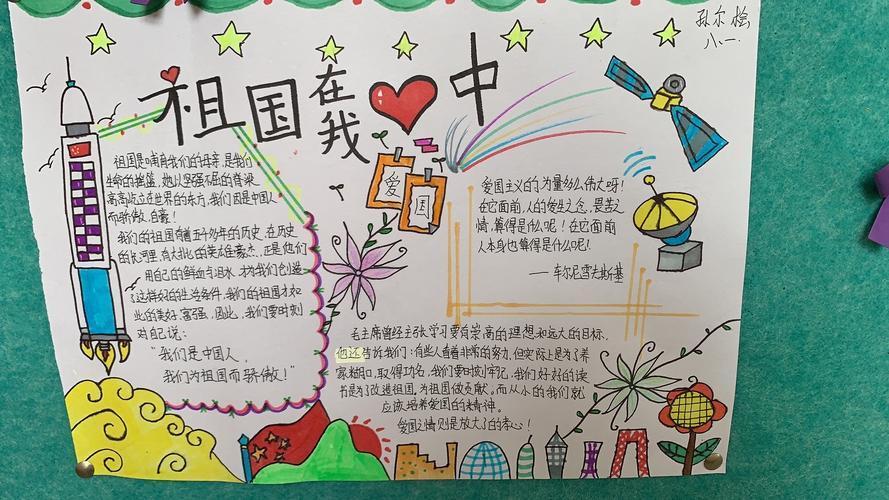 祖国在我中
孙尔桧
八.一.
爱
国
祖国是哺育我们的母亲,是我们
生命的摇篮,她以坚强不屈的脊梁
高高屹立在世界的东方,我们因是中国人
而骄傲、自豪!
我们的祖国有着五千多年的历史,在历史
的长河里,有大批的英雄豪杰,正是他们
用自己的鲜血与泪水,才为我们创造
了这样好的生活条件,我们的祖国才如
此的美好,富强,因此,我们要时刻
对自己说:
“我们是中国人,
我们为祖国而骄傲!”
爱国主义的力量多么伟大呀!
在它面前,人的爱生之念,畏苦之
情,算得是什么呢!在它面前
人本身也算得是什么呢!
——车尔尼雪夫斯基
毛主席曾经主张学习要有崇高的理想和远大的目标,
他还告诉我们:有些人看着非常的努力,但实际上是为了养
家糊口,取得功名,我们要时刻牢记,我们好好的读
书是为了改造祖国,为祖国做贡献,而从小的我们就
应该培养爱国的精神。
爱国之情则是放大了的孝心!